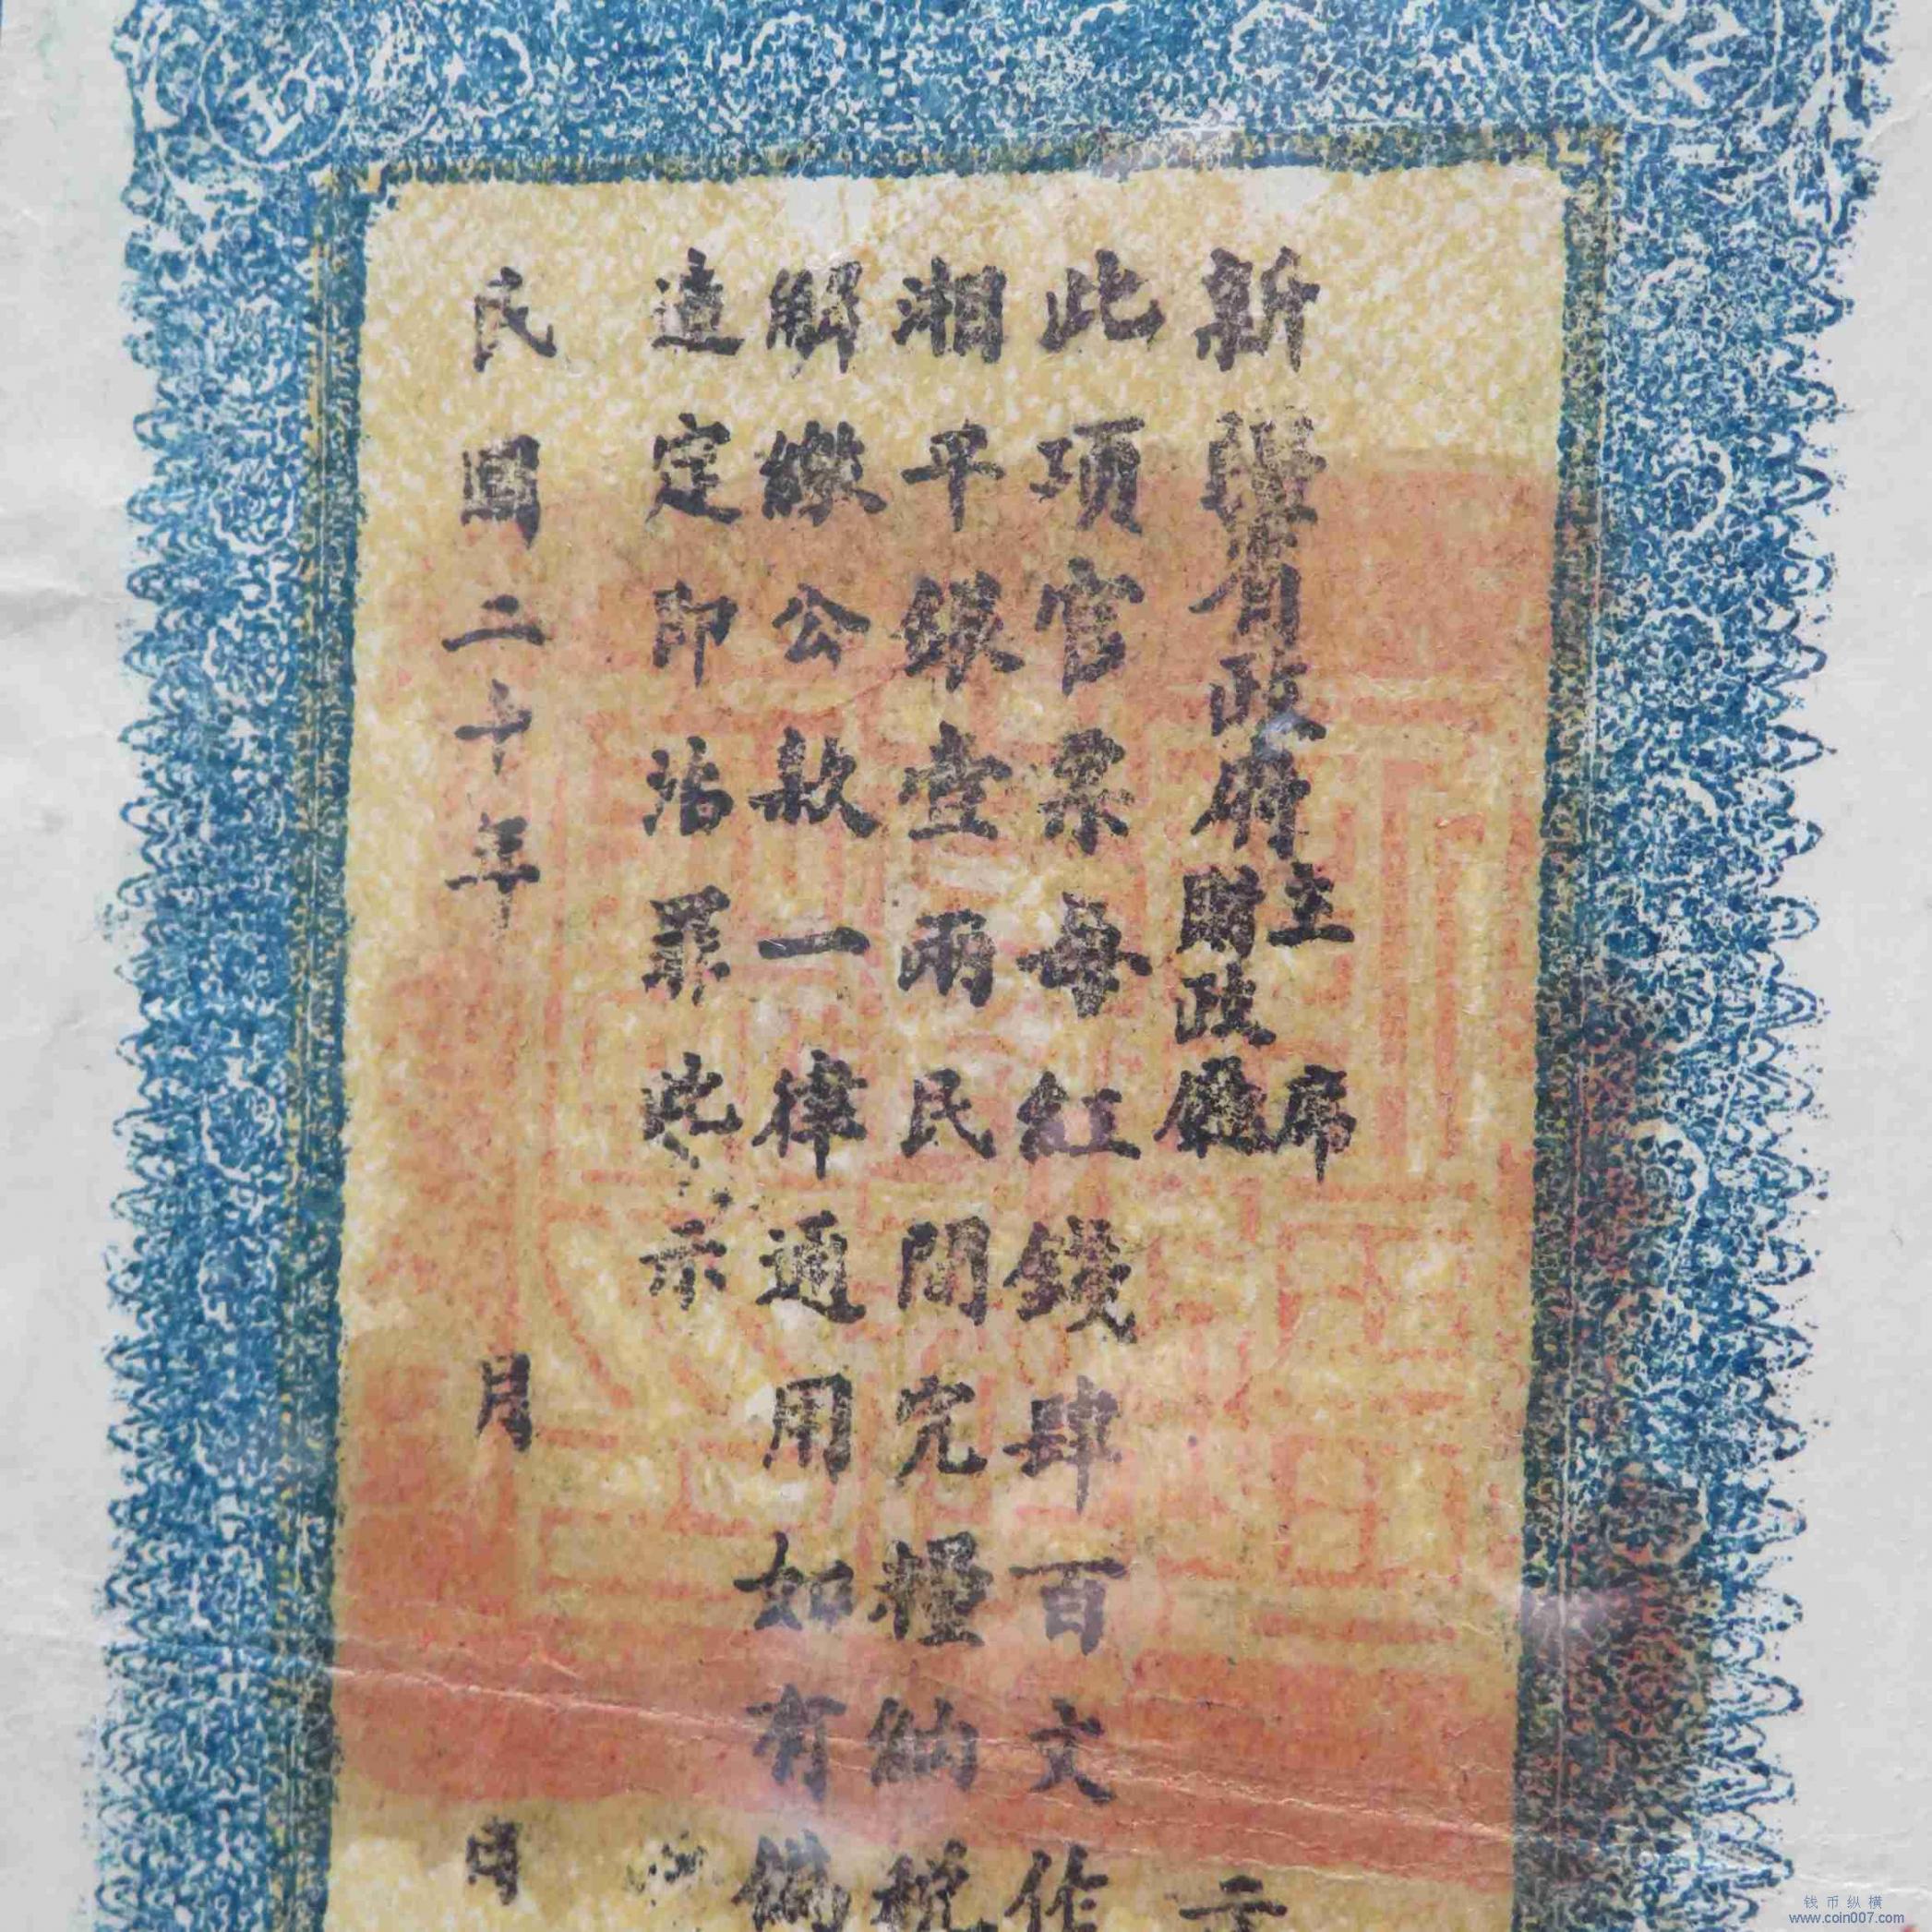 新疆省政府主席財政廳 示
此項官票每紅錢肆百文作
湘平銀壹兩民間完糧納稅
解繳公款一律通用如有偽
造定即治罪此示
民國二十年 月 日
钱币纵横
www.coin007.com